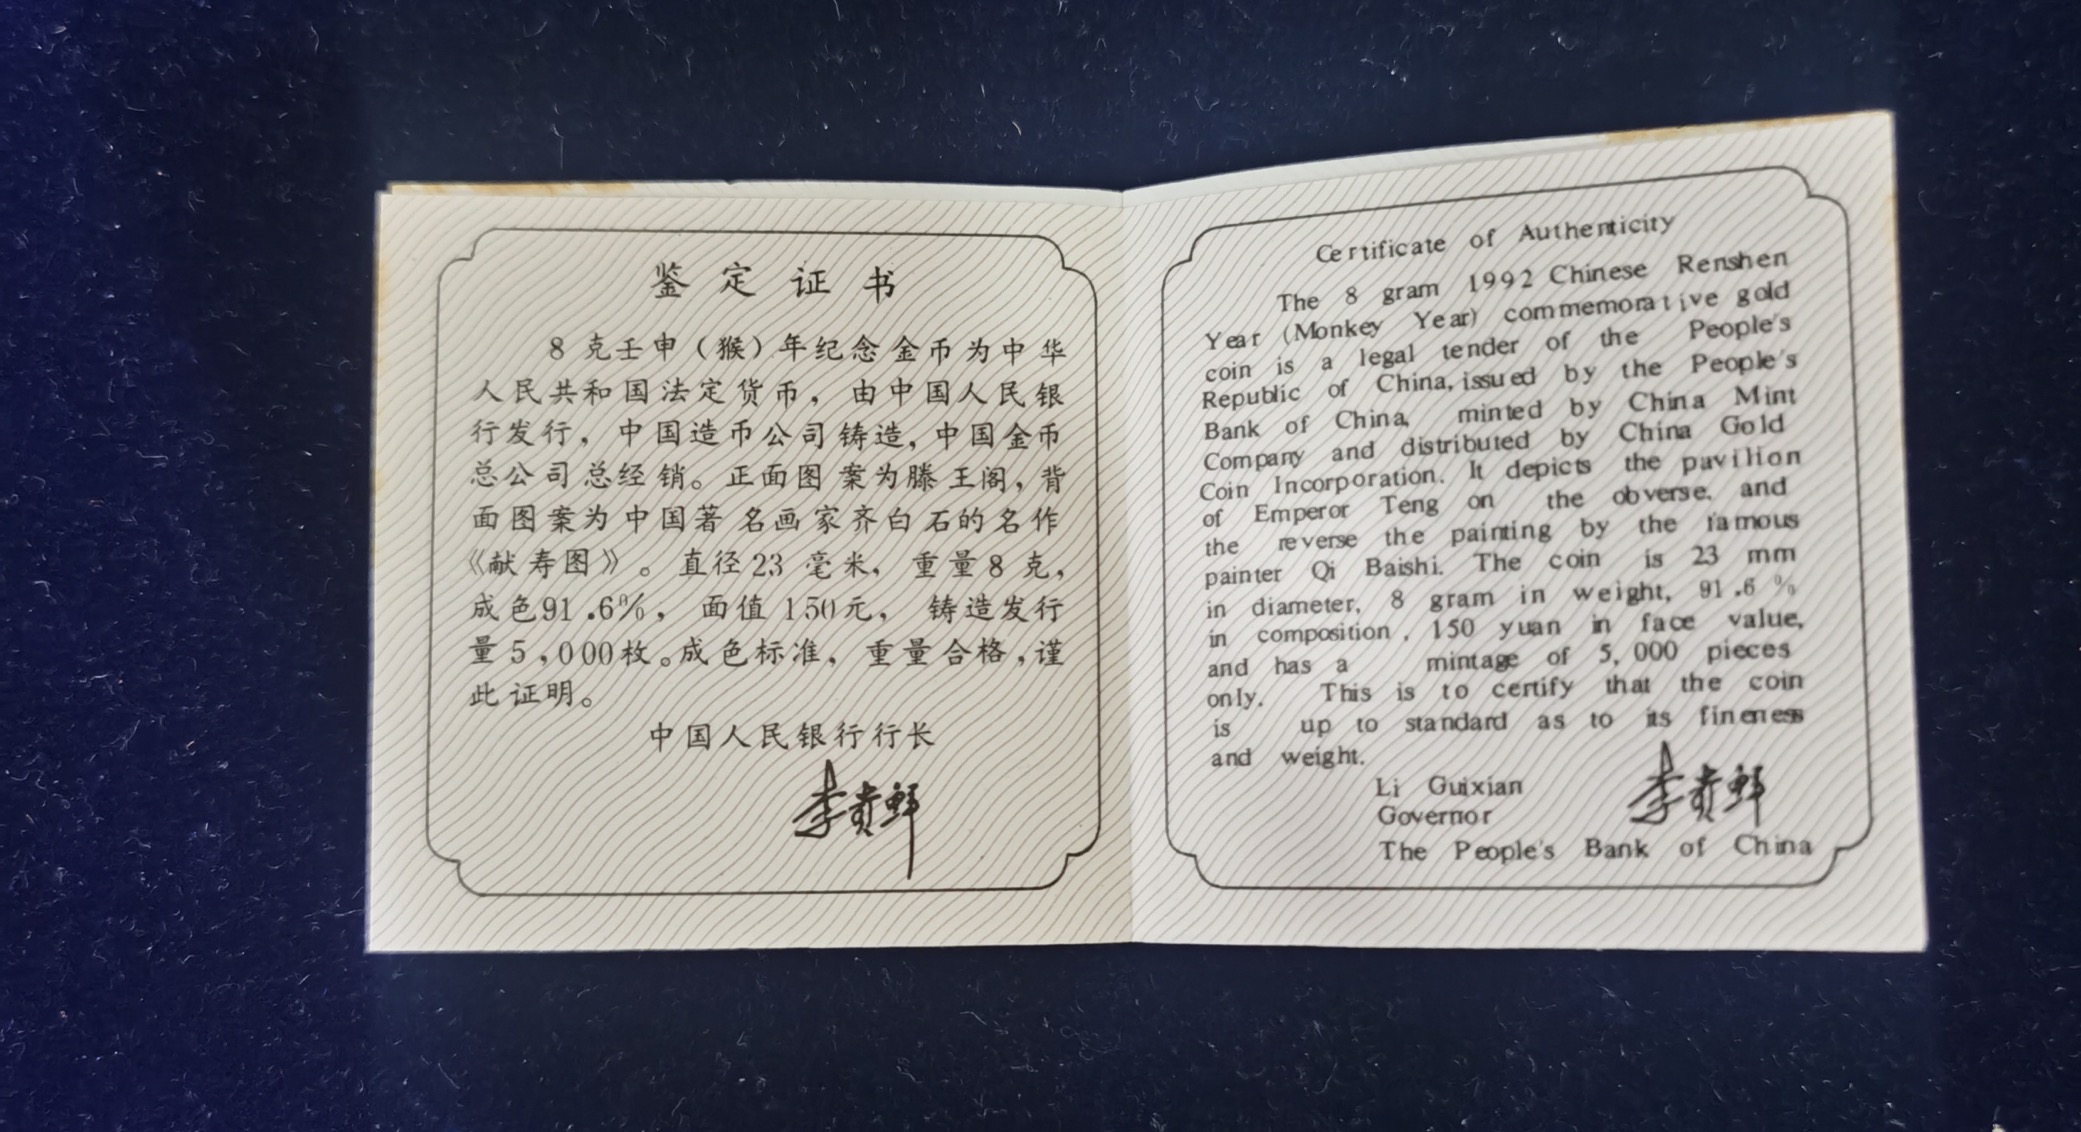 鉴定证书
8克壬申（猴）年纪念金币为中华
人民共和国法定货币，由中国人民银
行发行，中国造币公司铸造，中国金币
总公司总经销。正面图案为滕王阁，背
面图案为中国著名画家齐白石的名作
《献寿图》。直径23毫米，重量8克，
成色91.6%，面值150元，铸造发行
量5,000枚。成色标准，重量合格，谨
此证明。
中国人民银行行长
李贵鲜
Certificate of Authenticity
The 8 gram 1992 Chinese Renshen
Year (Monkey Year) commemorative gold
coin is a legal tender of the People's
Republic of China, issued by the People's
Bank of China, minted by China Mint
Company and distributed by China Gold
Coin Incorporation. It depicts the pavilion
of Emperor Teng on the obverse, and
the reverse the painting by the famous
painter Qi Baishi. The coin is 23 mm
in diameter, 8 gram in weight, 91.6 %
in composition, 150 yuan in face value,
and has a mintage of 5,000 pieces
only. This is to certify that the coin
is up to standard as to its fineness
and weight.
Li Guixian 李贵鲜
Governor
The People's Bank of China